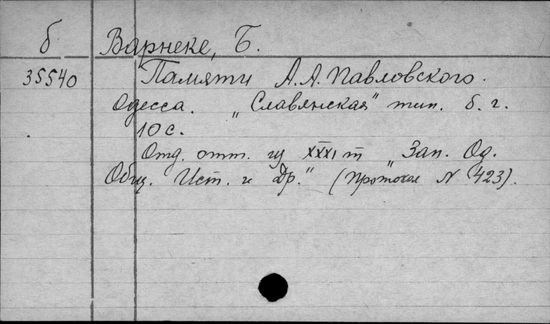 б Варнеке, Б.
35540 Памяти А.А. Павловского.
Одесса. „Славянская" тип. б. г.
10 с.
Отд. отт. из XXXI т „Зап. Од.
Общ. Ист. и Др." (Протокол N 423).